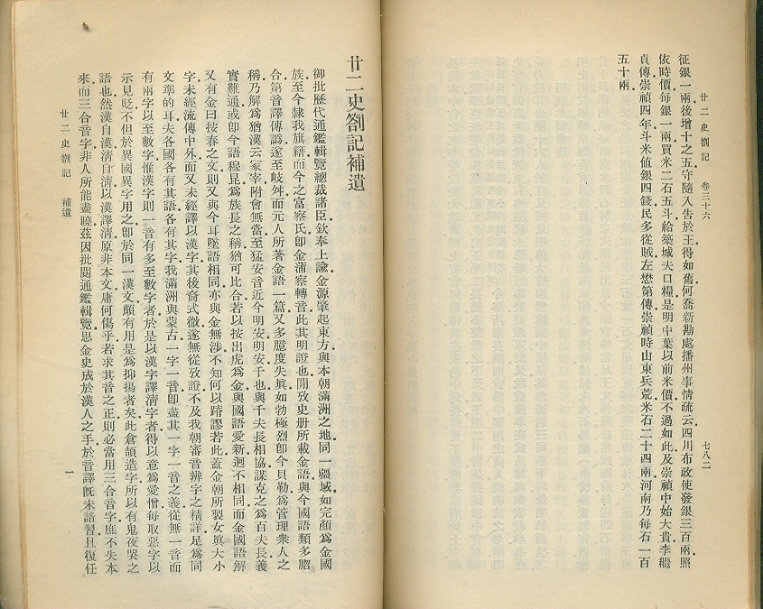 廿二史劄記 卷三十六
七八二
征銀一兩後增十之五守隨入告於王得如舊何喬新勘處播州事情疏云四川布政使發銀三百兩照
依時價每銀一兩買米二石五斗給築城夫口糧是明中葉以前米價不過如此及崇禎中始大貴李繼
貞傳崇禎四年斗米値銀四錢民多從賊左懋第傳崇禎時山東兵荒米石二十四兩河南乃每石一百
五十兩
廿二史劄記補遺
御批歷代通鑑輯覽總裁諸臣欽奉上諭金源肇起東方與本朝滿洲之地同一疆域如完顏爲金國
族至今隸我旗籍而今之富察氏卽金蒲察轉音此其明證也閒攷史册所載金語與今國語類多脗
合第音譯傳譌遂至岐舛而元人所著金語一篇又多臆度失眞如勃極烈卽今貝勒爲管理衆人之
稱乃解爲猶漢云冢宰附會無當至猛安音近今明安明安千也與千夫長相協謀克之爲百夫長義
實難通或卽今語穆昆爲族長之稱猶可比合若以按出虎爲金與國語愛新迥不相同而金國語解
又有金曰按春之文則又與今耳墜語相同亦與金無涉不知何以踳謬若此蓋金朝所製女眞大小
字未經流傳中外而又未經譯以漢字其後裔式微遂無從攷證不及我朝審音辨字之精詳足爲同
文準的耳夫各國各有其語各有其字我滿洲與蒙古一字一音卽盡其一字一音之義從無一音而
有兩字以至數字惟漢字則一音有多至數字者於是以漢字譯清字者得以意爲愛憎每取惡字以
示見貶不但於異國異字用之卽於同一漢文顛有用是爲抑揚者矣此倉頡造字所以有鬼夜哭之
語也然漢自漢清自清以漢譯清原非本文庸何傷乎若求其音之正則必當用三合音字庶不失本
來而三合音字非人所能盡曉茲因批閱通鑑輯覽思金史成於漢人之手於音譯旣未諳習且復任
廿二史劄記 補遺
一